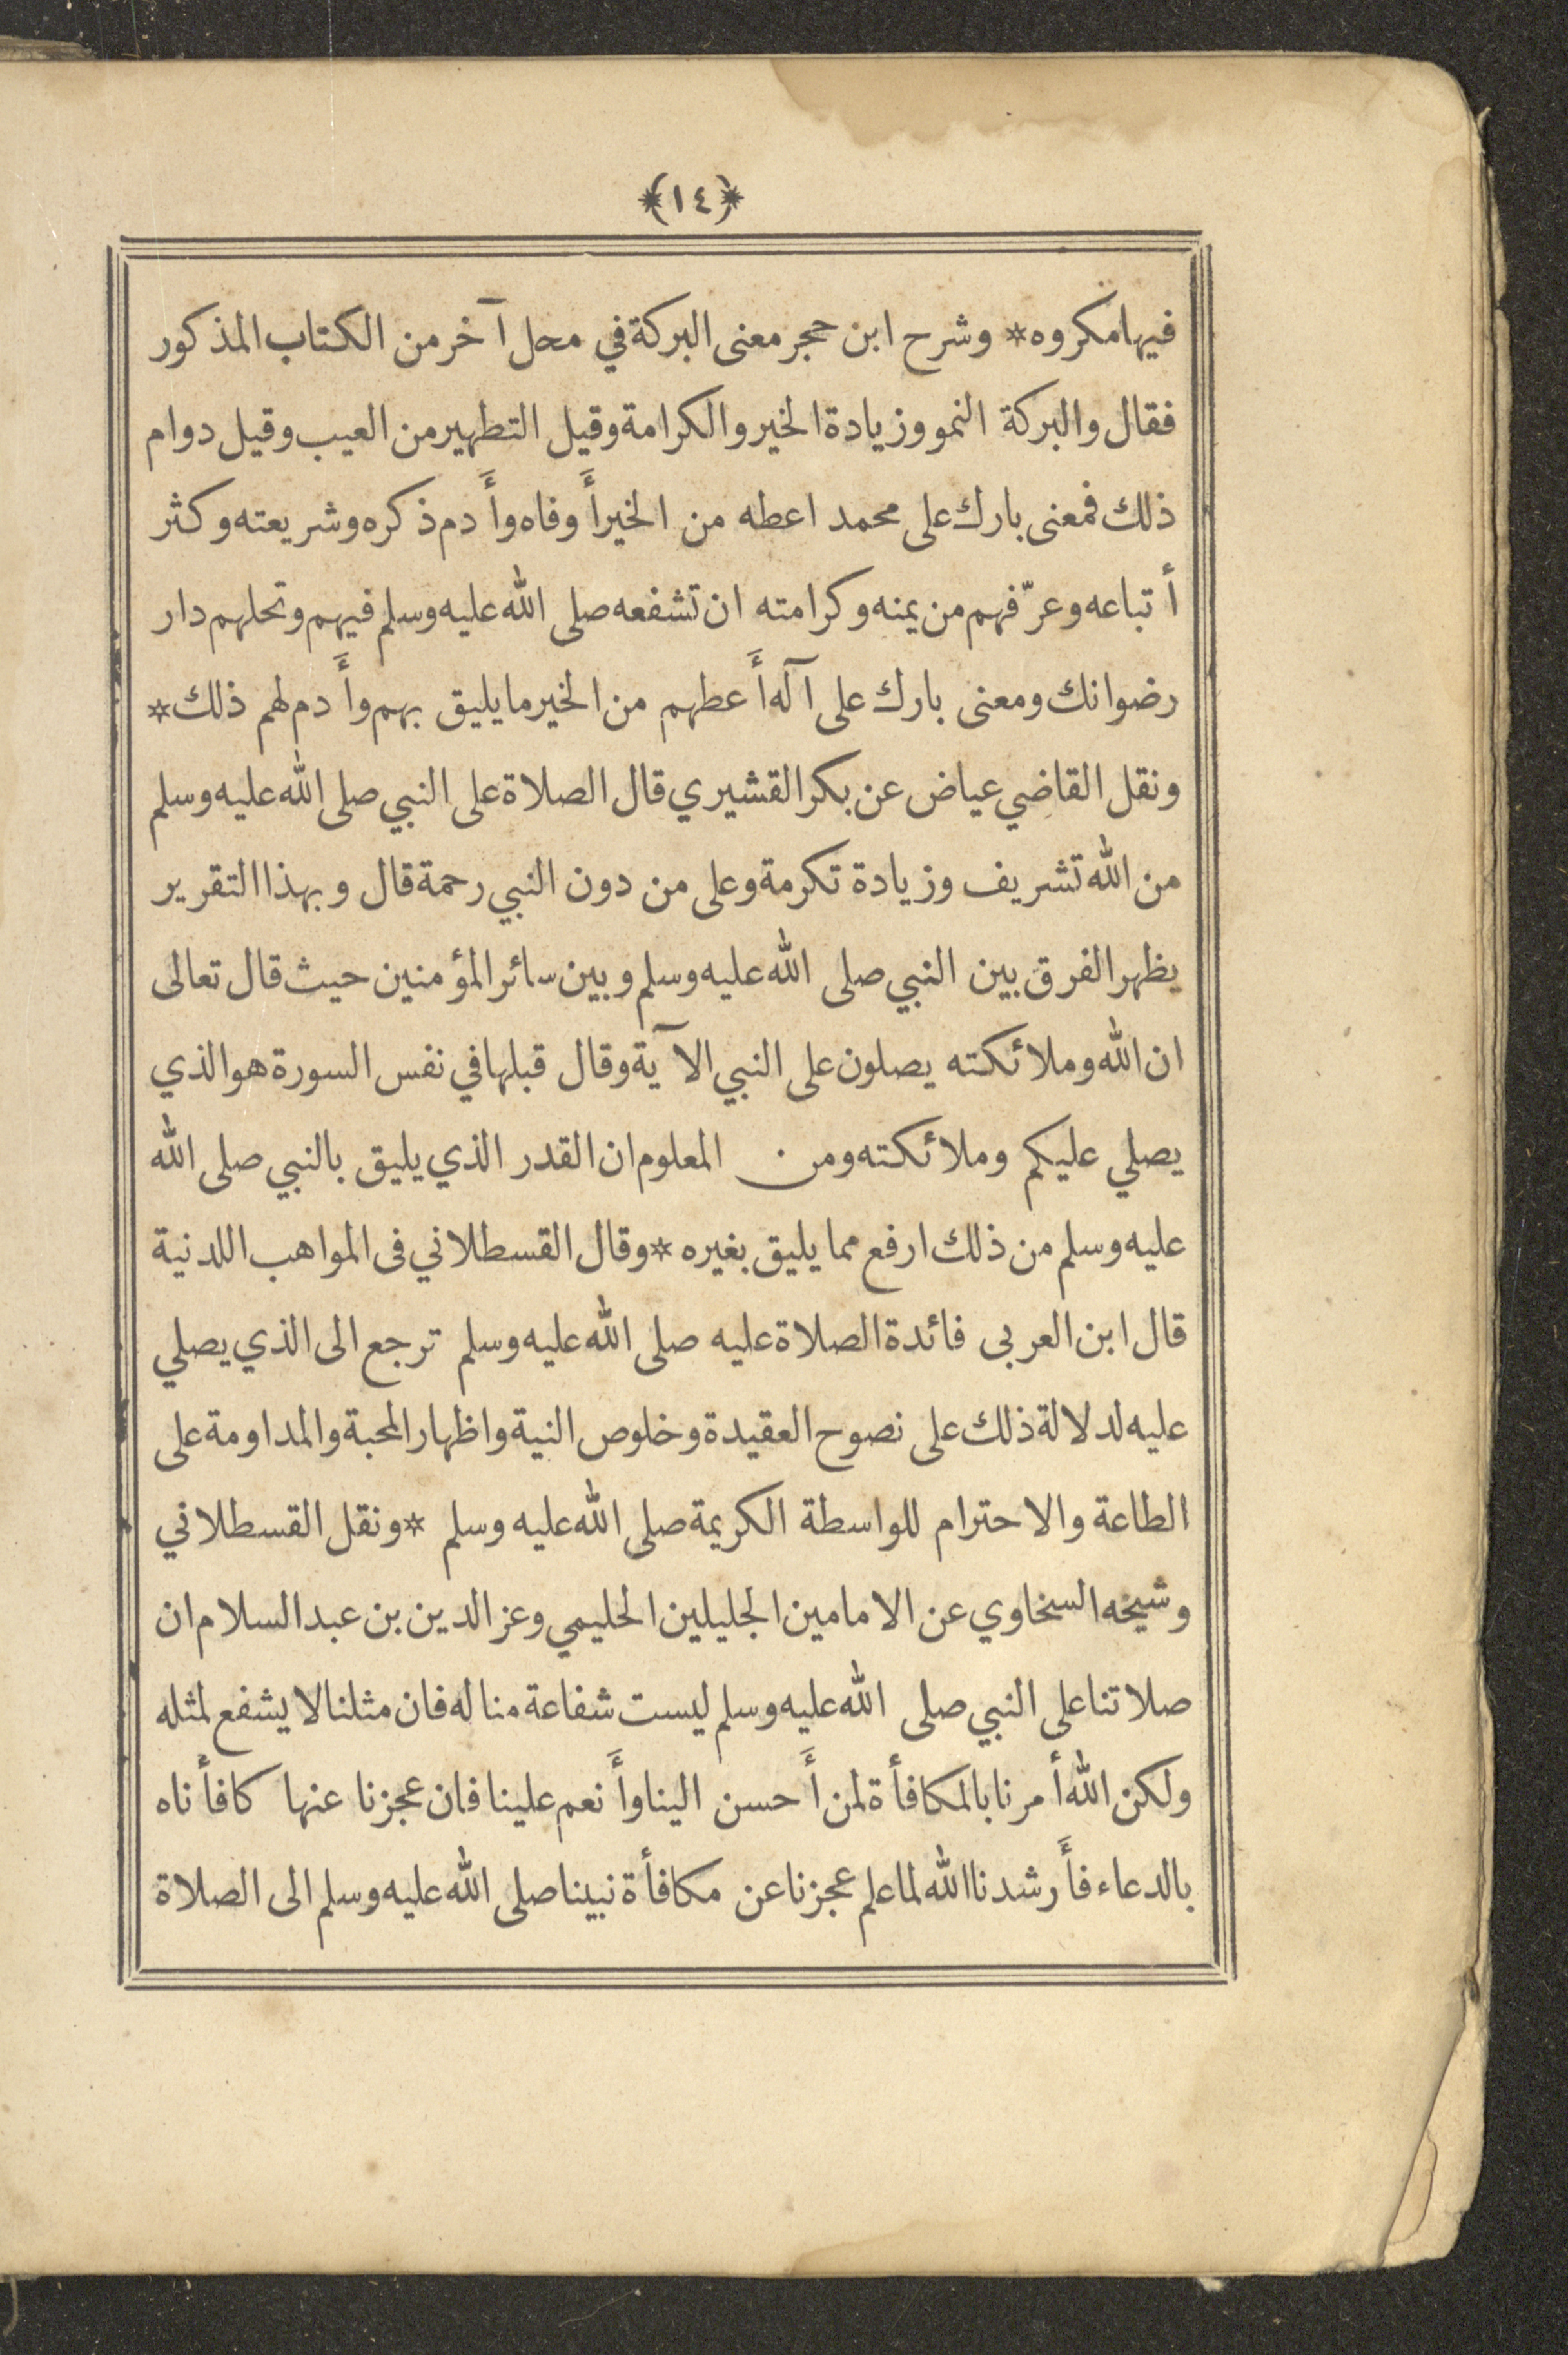 *(١٤)*
فيها مكروه * وشرح ابن حجر معنى البركة في محل آخر من الكتاب المذكور
فقال والبركة النمو وزيادة الخير والكرامة وقيل التطهير من العيب وقيل دوام
ذلك فمعنى بارك على محمد اعطه من الخير أَوفاه وأَدم ذكره وشريعته وكثر
أتباعه وعرّفهم من يمنه وكرامته ان تشفعه صلى الله عليه وسلم فيهم وتحلهم دار
رضوانك ومعنى بارك على آله أَعطهم من الخير ما يليق بهم وأَدم لهم ذلك *
ونقل القاضي عياض عن بكر القشيري قال الصلاة على النبي صلى الله عليه وسلم
من الله تشريف وزيادة تكرمة وعلى من دون النبي رحمة قال وبهذا التقرير
يظهر الفرق بين النبي صلى الله عليه وسلم وبين سائر المؤمنين حيث قال تعالى
ان الله وملائكته يصلون على النبي الآية وقال قبلها في نفس السورة هو الذي
يصلي عليكم وملائكته ومن المعلوم ان القدر الذي يليق بالنبي صلى الله
عليه وسلم من ذلك ارفع مما يليق بغيره * وقال القسطلاني فى المواهب اللدنية
قال ابن العربى فائدة الصلاة عليه صلى الله عليه وسلم ترجع الى الذي يصلي
عليه لدلالة ذلك على نصوح العقيدة وخلوص النية واظهار المحبة والمداومة على
الطاعة والاحترام للواسطة الكريمة صلى الله عليه وسلم * ونقل القسطلاني
وشيخه السخاوي عن الامامين الجليلين الحليمي وعز الدين بن عبد السلام ان
صلاتنا على النبي صلى الله عليه وسلم ليست شفاعة منا له فان مثلنا لا يشفع لمثله
ولكن الله أمرنا بالمكافأة لمن أَحسن الينا وأَنعم علينا فان عجزنا عنها كافأناه
بالدعاء فأَرشدنا الله لما علم عجزنا عن مكافأة نبينا صلى الله عليه وسلم الى الصلاة